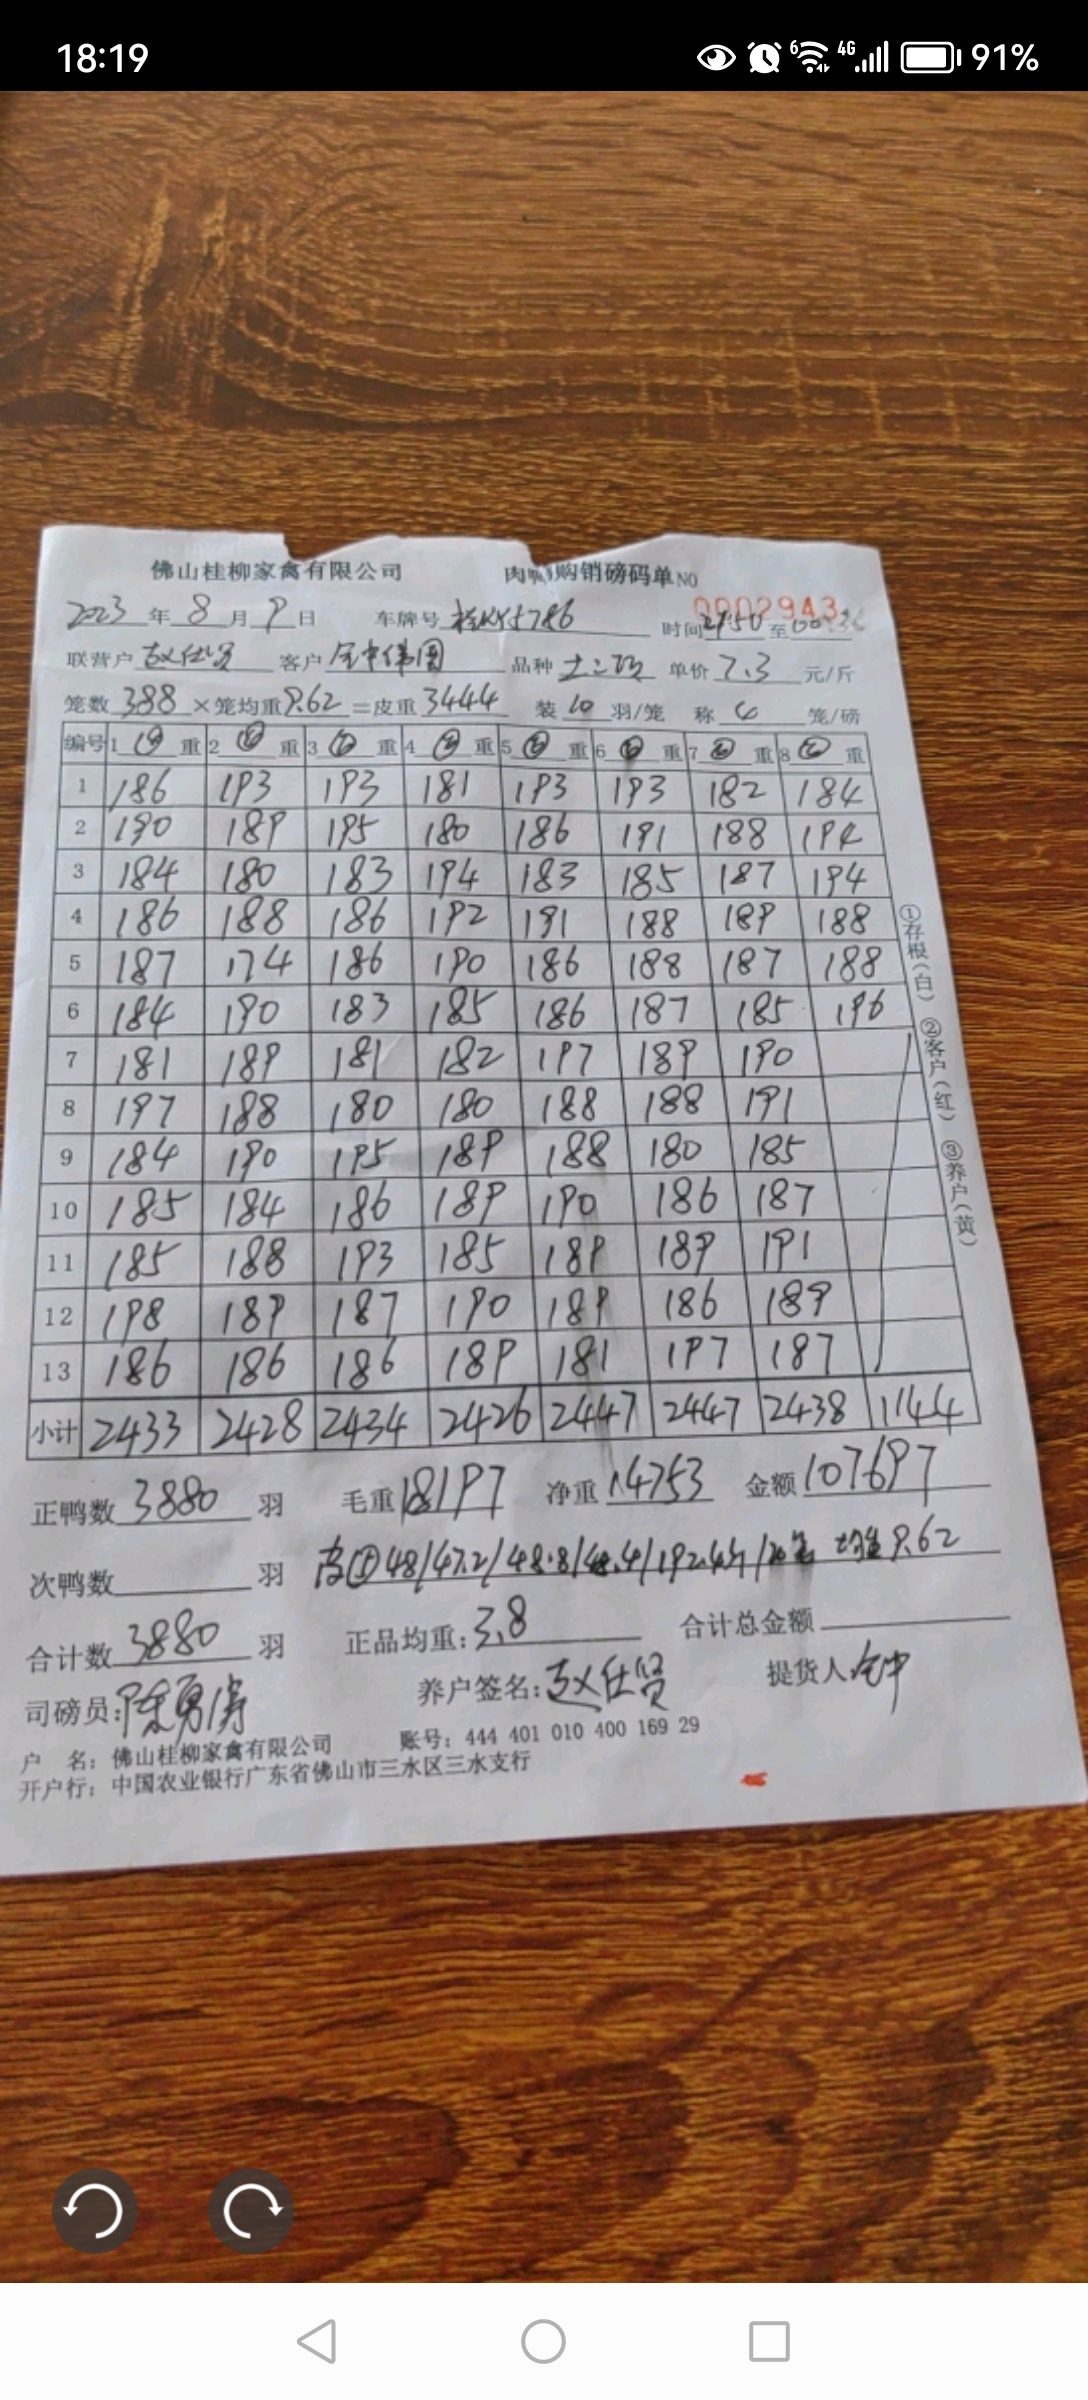 18:19 6 4G 91%
佛山桂柳家禽有限公司 肉鸭购销磅码单 NO 0002943
2023 年 8 月 9 日 车牌号 时间 至
联营户 赵仕贤 客户 品种 单价 7.3 元/斤
笼数 388 ×笼均重 9.62 =皮重 3444 装 10 羽/笼 称 4 笼/磅
编号 1 重 2 重 3 重 4 重 5 重 6 重 7 重 8 重
1 186 193 193 181 193 193 182 184
2 190 189 195 180 186 191 188 194
3 184 180 183 194 183 185 187 194
4 186 188 186 192 191 188 189 188
5 187 174 186 190 186 188 187 188
6 184 190 183 185 186 187 185 196
7 181 189 181 182 197 189 190
8 197 188 180 180 188 188 191
9 184 190 195 189 188 180 185
10 185 184 186 189 190 186 187
11 185 188 193 185 189 189 191
12 198 189 187 190 189 186 189
13 186 186 186 189 181 197 187
小计 2433 2428 2434 2426 2447 2447 2438 1144
正鸭数 3880 羽 毛重 18197 净重 14753 金额 107697
次鸭数 羽 皮 48/47.2/48.8/48.4/192.4斤/20笼 均重 9.62
合计数 3880 羽 正品均重: 3.8 合计总金额
司磅员: 陈勇涛 养户签名: 赵仕贤 提货人
户 名: 佛山桂柳家禽有限公司 账号: 444 401 010 400 169 29
开户行: 中国农业银行广东省佛山市三水区三水支行
①存根(白) ②客户(红) ③养户(黄)